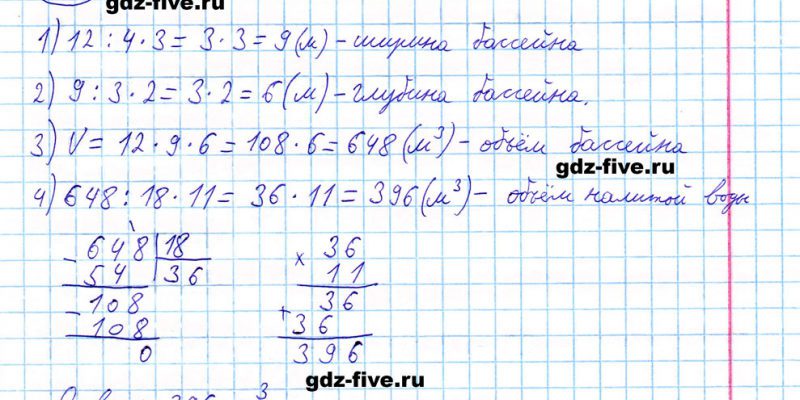 gdz-five.ru
1) 12 : 4 · 3 = 3 · 3 = 9 (м) - ширина бассейна
2) 9 : 3 · 2 = 3 · 2 = 6 (м) - глубина бассейна.
3) V = 12 · 9 · 6 = 108 · 6 = 648 (м³) - объём бассейна
gdz-five.ru
4) 648 : 18 · 11 = 36 · 11 = 396 (м³) - объём налитой воды
- 648 | 18
54 | 36
- 108
108
0
× 36
11
36
+ 36
396
gdz-five.ru